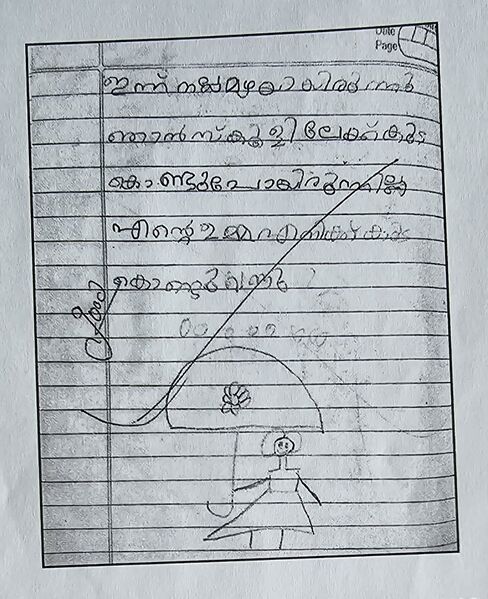 Date
Page
ഇന്ന് നല്ല മഴയായിരുന്നു
ഞാൻ സ്കൂളിലേക്ക് കുട
കൊണ്ടുപോയിരുന്നില്ല
എന്റെ ഉമ്മ എനിക്ക് കുട
കൊണ്ടുവന്നു